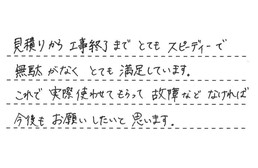 見積りから工事終了までとてもスピーディーで
無駄がなくとても満足しています。
これで実際使わせてもらって故障などなければ
今後もお願いしたいと思います。